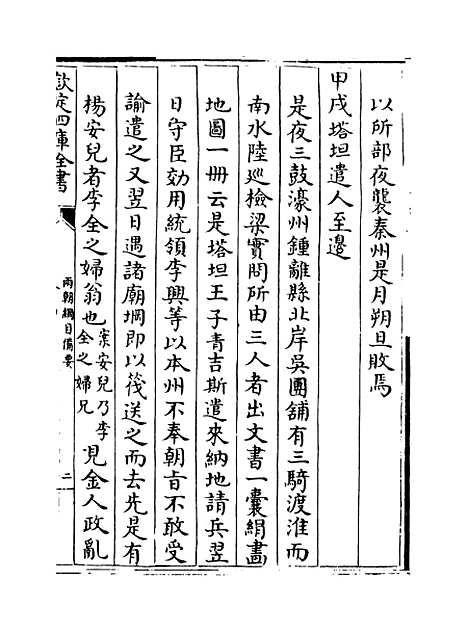 以所部夜襲秦州是月朔旦敗焉
甲戌塔坦遣人至邊
是夜三鼓濠州鍾離縣北岸吳團舖有三騎渡淮而
南水陸廵檢梁實問所由三人者出文書一囊絹畫
地圖一冊云是塔坦王子青吉斯遣來納地請兵翌
日守臣効用統領李興等以本州不奉朝㫖不敢受
諭遣之又翌日遇諸廟堈即以筏送之而去先是有
楊安兒者李全之婦翁也案安兒乃李全之婦兄見金人政亂
欽定四庫全書
兩朝綱目備要
二